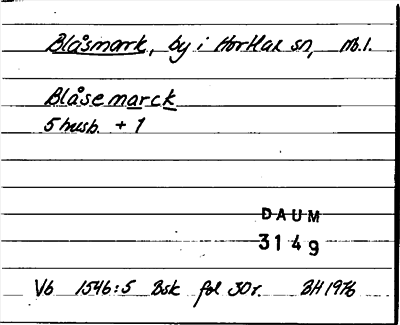 Blåsmark, by i Hortlax sn, nb.1.
Blåsemarck
5 husb. + 1
DAUM
3149
Vb 1546:5 Bsk fol 30r. BH 1976